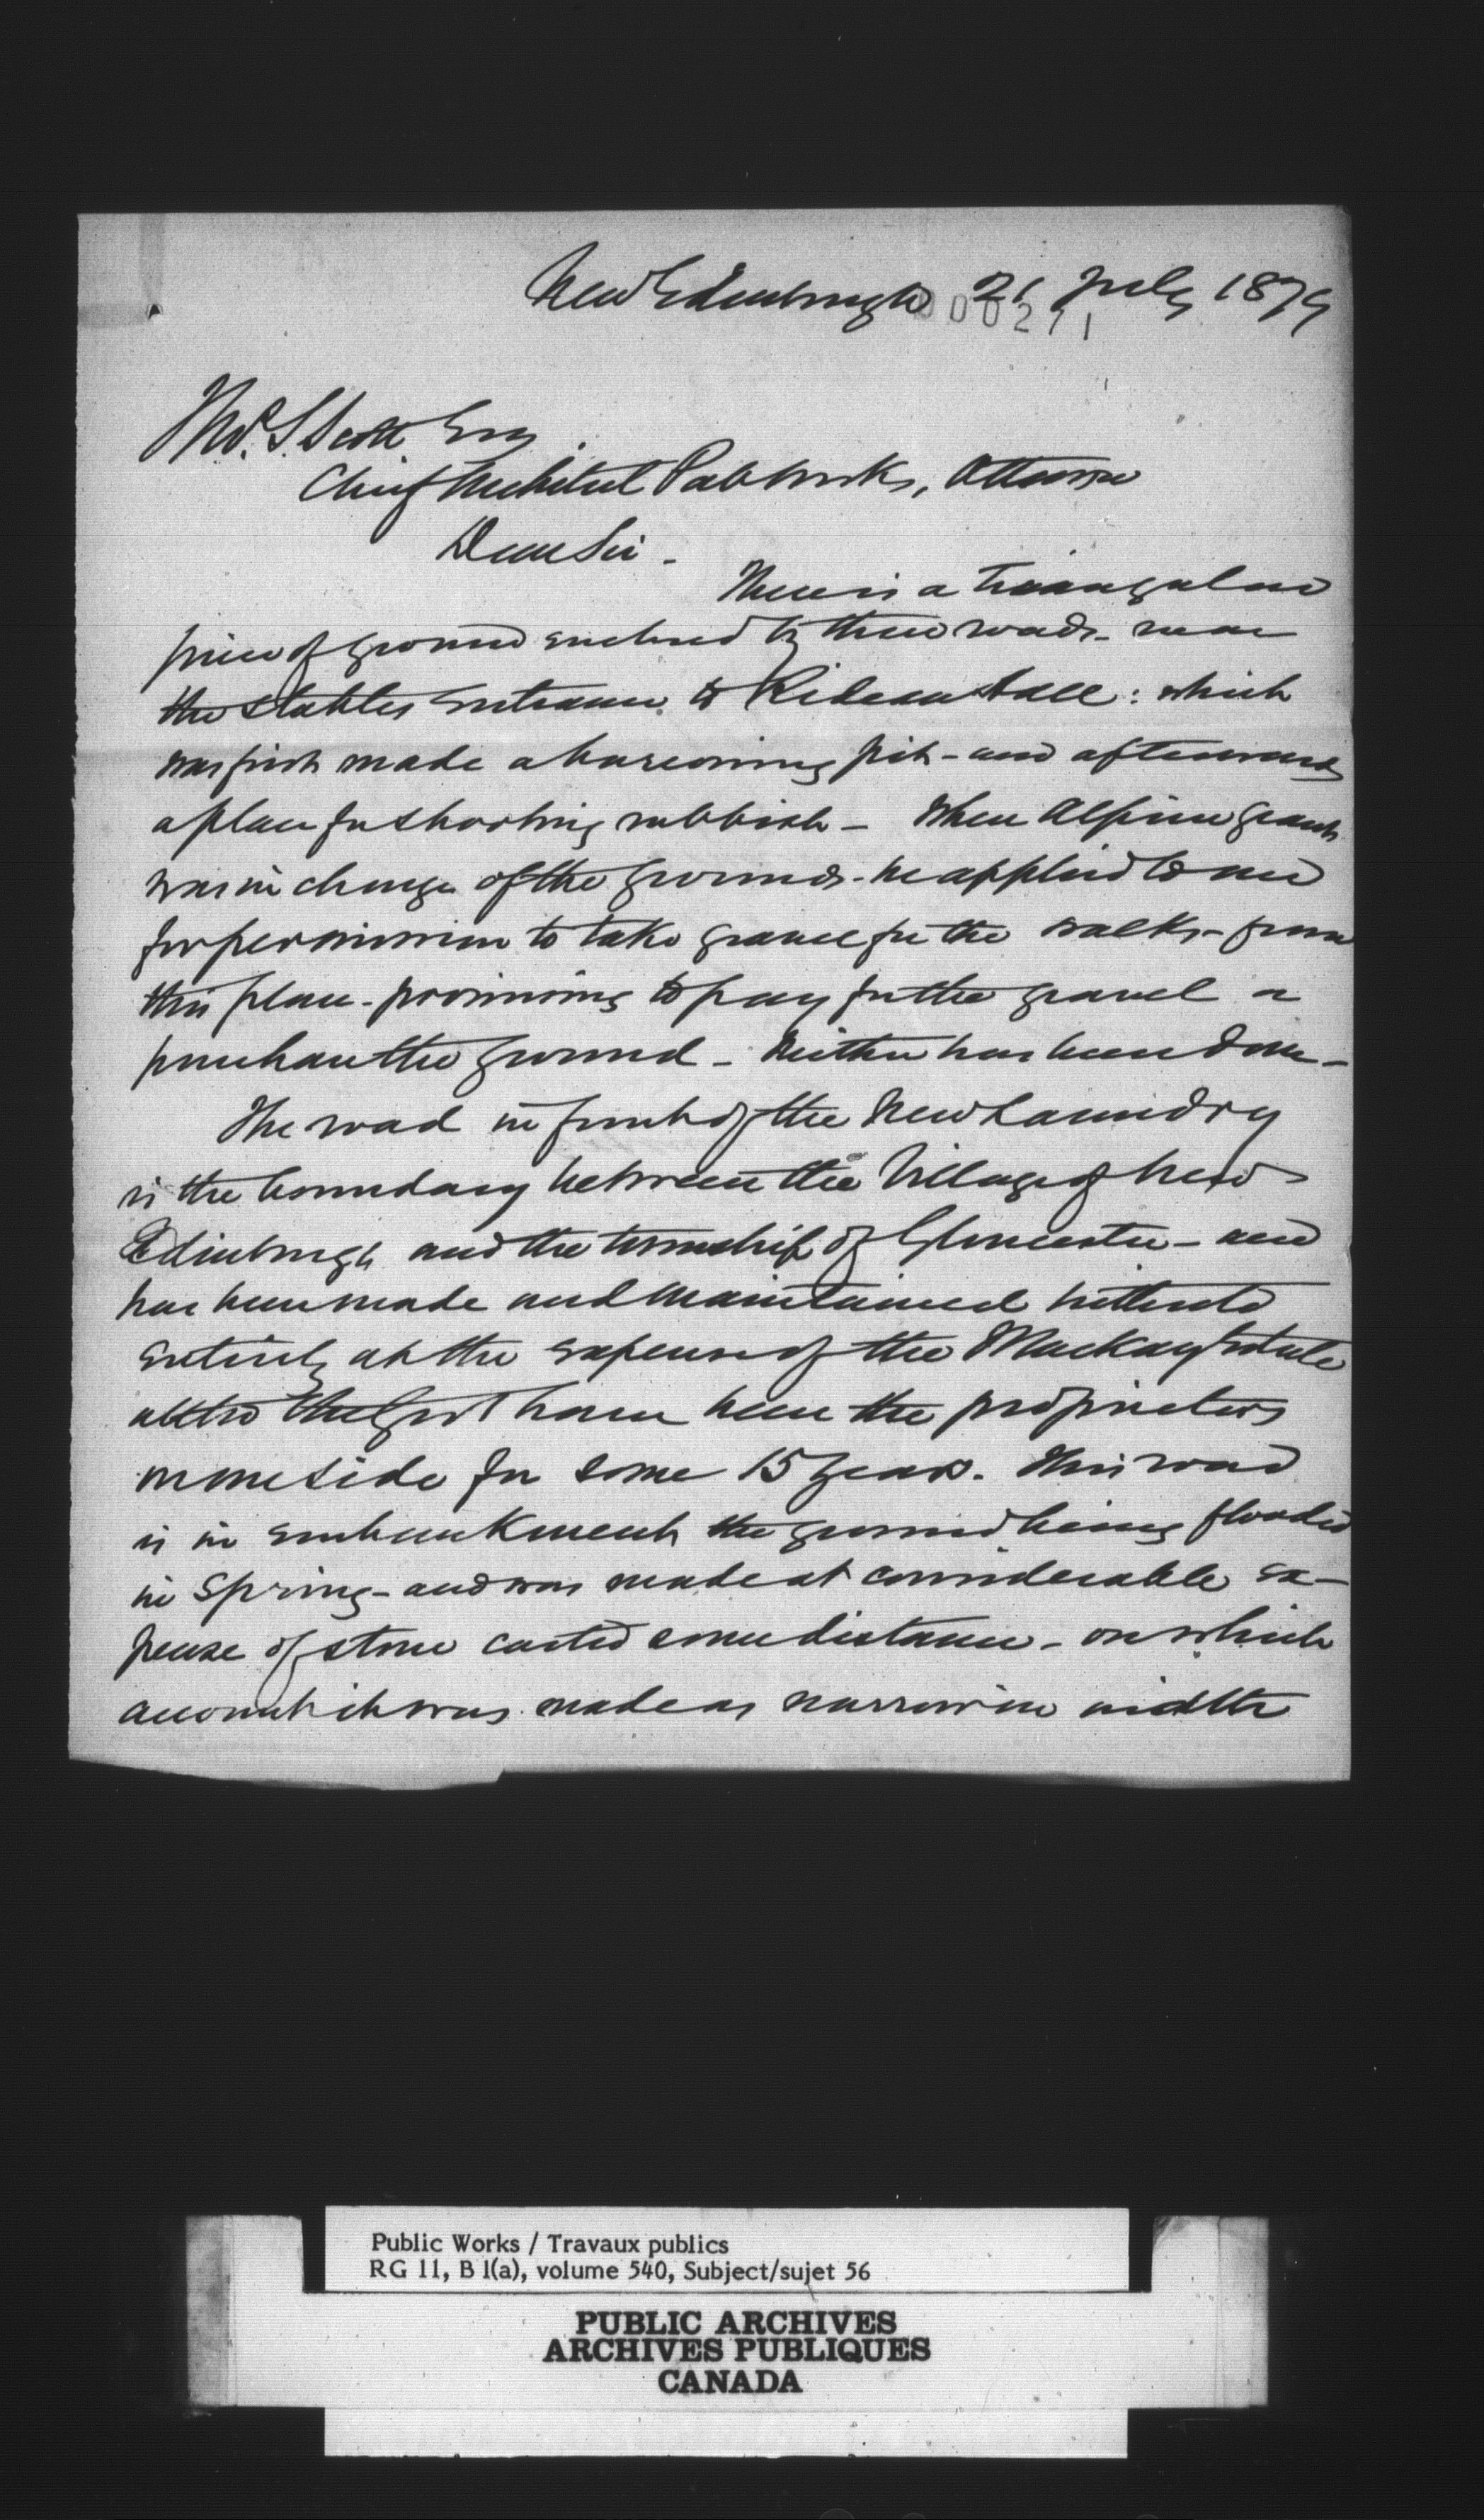 New Edinburgh 21 July 1879
000271
Thos. S. Scott Esq
Chief Architect Pub Works, Ottawa
Dear Sir -
There is a triangular
piece of ground enclosed by three roads - near
the stables entrance to Rideau Hall: which
was first made a borrowing pit - and afterwards
a place for shooting rubbish - When Alpine Grant
was in charge of the grounds - he applied to me
for permission to take gravel for the walks - from
this place - promising to pay for the gravel or
purchase the ground - Neither has been done -
The road in front of the New Laundry
is the boundary between the Village of New
Edinburgh and the township of Gloucester - and
has been made and maintained hitherto
entirely at the expense of the Mackay Estate
altho the Govt have been the proprietors
on one side for some 15 years. This road
is in embankment the ground being flooded
in Spring - and was made at considerable ex-
pense of stone carted some distance - on which
account it was made as narrow in width
Public Works / Travaux publics
RG 11, B 1(a), volume 540, Subject/sujet 56
PUBLIC ARCHIVES
ARCHIVES PUBLIQUES
CANADA